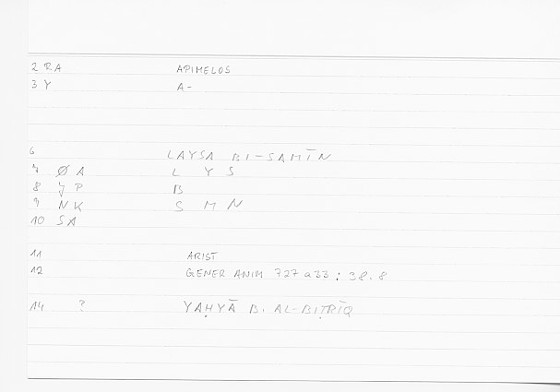 2 RA APIMELOS
3 Y A-
6 LAYSA BI-SAMĪN
7 Ø A L Y S
8 JP B
9 NK S M N
10 SA
11 ARIST
12 GENER ANIM 727 a33 : 38.8
14 ? YAḤYĀ B. AL-BIṬRĪQ